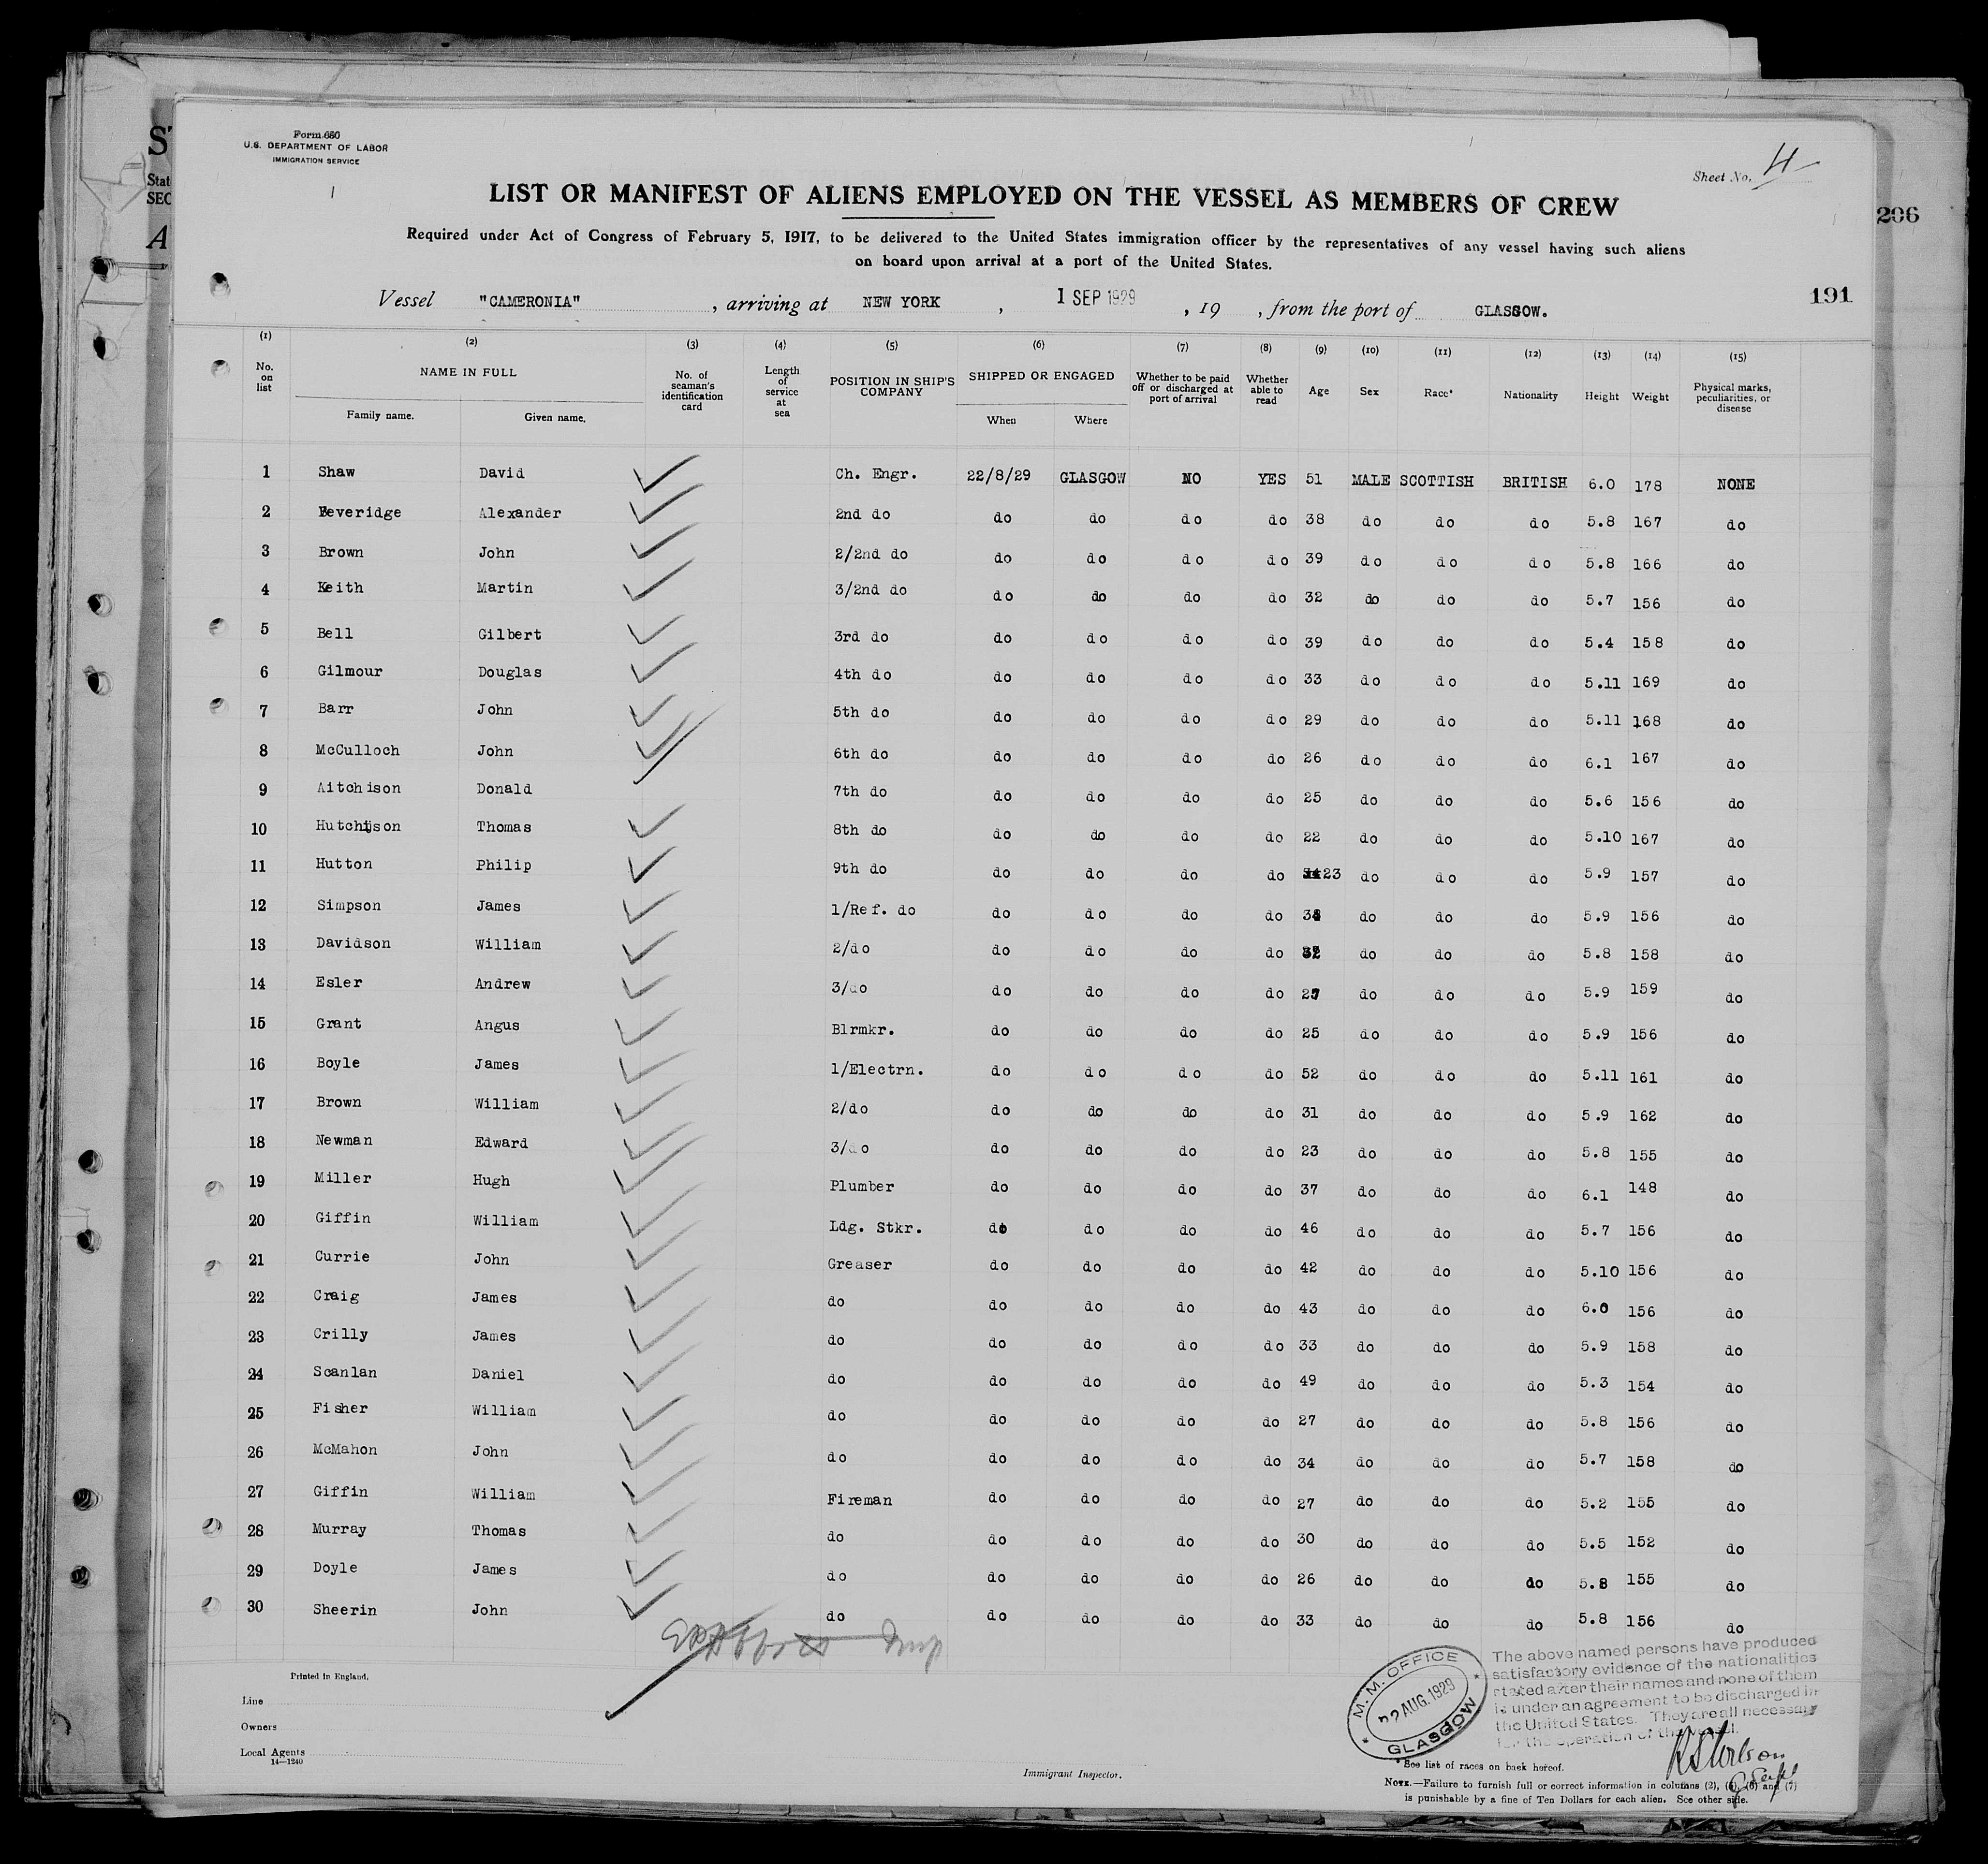 Form 680
U.S. DEPARTMENT OF LABOR
IMMIGRATION SERVICE
Sheet No. 4
LIST OR MANIFEST OF ALIENS EMPLOYED ON THE VESSEL AS MEMBERS OF CREW
206
Required under Act of Congress of February 5, 1917, to be delivered to the United States immigration officer by the representatives of any vessel having such aliens
on board upon arrival at a port of the United States.
Vessel "CAMERONIA", arriving at NEW YORK, 1 SEP 1929, 19 , from the port of GLASGOW.
191
(1) (2) (3) (4) (5) (6) (7) (8) (9) (10) (11) (12) (13) (14) (15)
No. on list NAME IN FULL Family name. Given name. No. of seaman's identification card Length of service at sea POSITION IN SHIP'S COMPANY SHIPPED OR ENGAGED When Where Whether to be paid off or discharged at port of arrival Whether able to read Age Sex Race* Nationality Height Weight Physical marks, peculiarities, or disease
1 Shaw David Ch. Engr. 22/8/29 GLASGOW NO YES 51 MALE SCOTTISH BRITISH 6.0 178 NONE
2 Beveridge Alexander 2nd do do do do do 38 do do do 5.8 167 do
3 Brown John 2/2nd do do do do do 39 do do do 5.8 166 do
4 Keith Martin 3/2nd do do do do do 32 do do do 5.7 156 do
5 Bell Gilbert 3rd do do do do do 39 do do do 5.4 158 do
6 Gilmour Douglas 4th do do do do do 33 do do do 5.11 169 do
7 Barr John 5th do do do do do 29 do do do 5.11 168 do
8 McCulloch John 6th do do do do do 26 do do do 6.1 167 do
9 Aitchison Donald 7th do do do do do 25 do do do 5.6 156 do
10 Hutchison Thomas 8th do do do do do 22 do do do 5.10 167 do
11 Hutton Philip 9th do do do do do 23 do do do 5.9 157 do
12 Simpson James 1/Ref. do do do do do do do do 5.9 156 do
13 Davidson William 2/do do do do do do do do 5.8 158 do
14 Esler Andrew 3/do do do do do 27 do do do 5.9 159 do
15 Grant Angus Blrmkr. do do do do 25 do do do 5.9 156 do
16 Boyle James 1/Electrn. do do do do 52 do do do 5.11 161 do
17 Brown William 2/do do do do do 31 do do do 5.9 162 do
18 Newman Edward 3/do do do do do 23 do do do 5.8 155 do
19 Miller Hugh Plumber do do do do 37 do do do 6.1 148 do
20 Giffin William Ldg. Stkr. do do do do 46 do do do 5.7 156 do
21 Currie John Greaser do do do do 42 do do do 5.10 156 do
22 Craig James do do do do do 43 do do do 6.0 156 do
23 Crilly James do do do do do 33 do do do 5.9 158 do
24 Scanlan Daniel do do do do do 49 do do do 5.3 154 do
25 Fisher William do do do do do 27 do do do 5.8 156 do
26 McMahon John do do do do do 34 do do do 5.7 158 do
27 Giffin William Fireman do do do do 27 do do do 5.2 155 do
28 Murray Thomas do do do do do 30 do do do 5.5 152 do
29 Doyle James do do do do do 26 do do do 5.8 155 do
30 Sheerin John do do do do do 33 do do do 5.8 156 do
Printed in England.
Line
Owners
Local Agents
14—1240
Immigrant Inspector.
M.M. OFFICE
AUG. 1929
GLASGOW
The above named persons have produced
satisfactory evidence of the nationalities
stated after their names and none of them
is under an agreement to be discharged in
the United States. They are all necessary
for the operation of the vessel.
*See list of races on back hereof.
NOTE.—Failure to furnish full or correct information in columns (2), (5), (6) and (7)
is punishable by a fine of Ten Dollars for each alien. See other side.